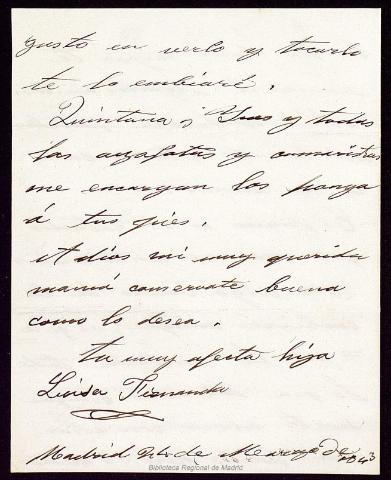 gusto en verlo y tocarlo
te lo embiaré.
Quintana, y todas
las azafatas y camaristas
me encargan los ponga
á tus pies.
A dios mi muy querida
mamá conservate buena
como lo desea.
tu muy afecta hija
Luisa Fernanda
Madrid 24 de Marzo de 1843
Biblioteca Regional de Madrid